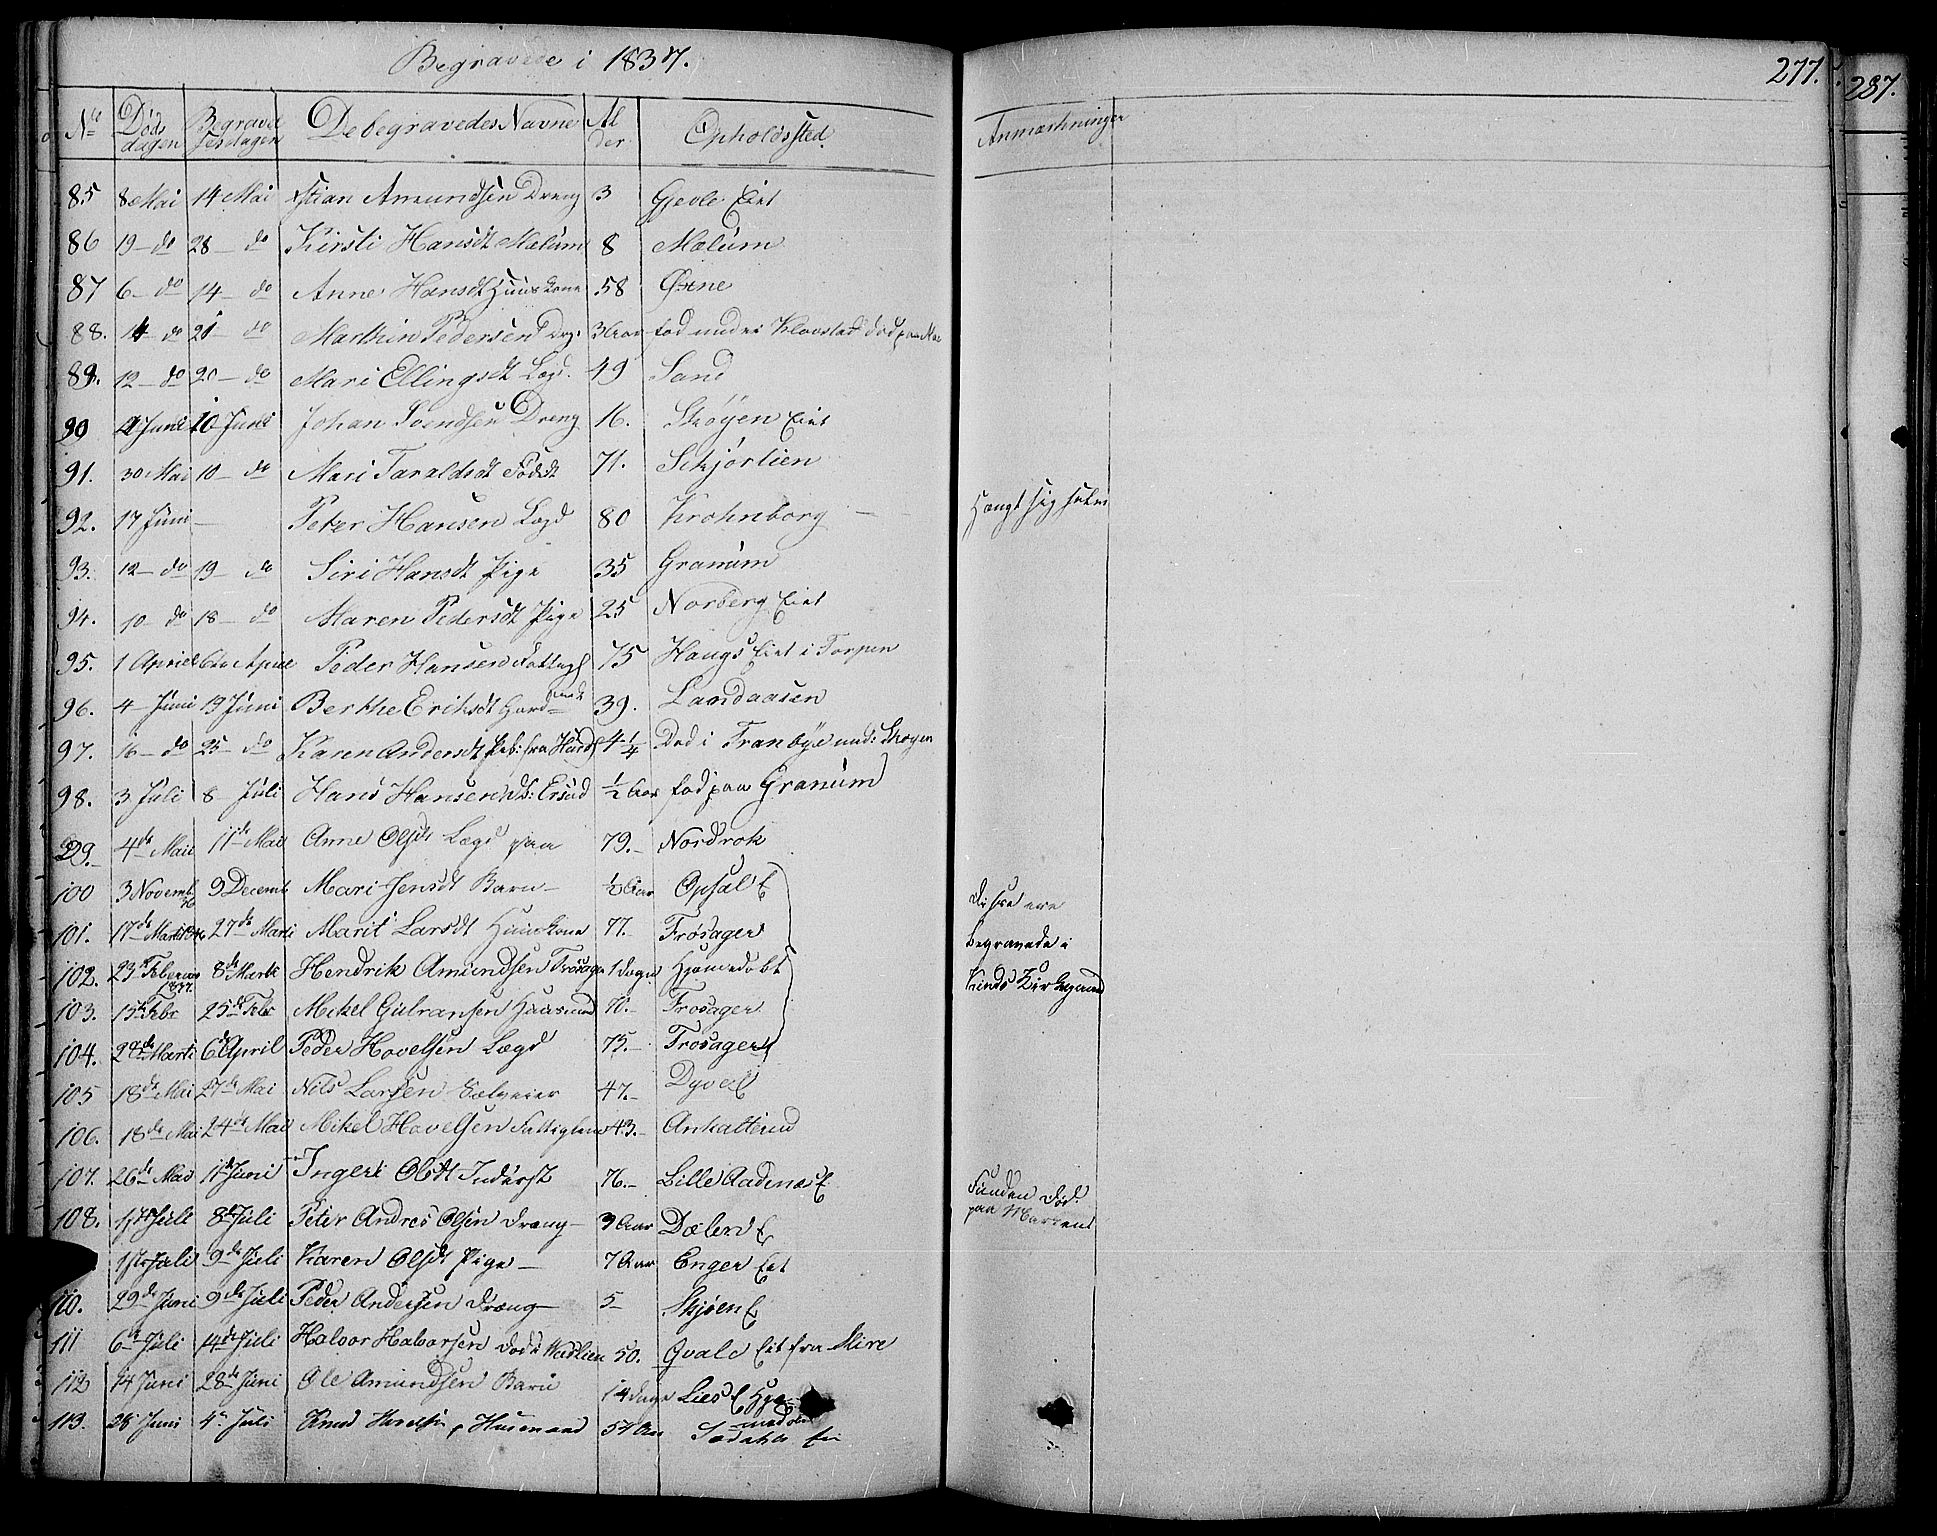 Begravede i 1837.
277.
287.
No Døds dagen Begravelsesdagen De begravedes Navne Alder Opholdssted. Anmærkninger
85 8 Mai 14 Mai Amundsen Dreng 3 Gjevle Eiet
86 19 - do 28 - do Kirsti Hansdt Mælum 8 Mælum
87 6 - do 14 - do Anne Hansdt Huuskone 58 Øxne
88. 14 do 21 - do Marthin Pedersen 3 Aar fød under Klovstad død paa
89. 12 - do 20 - do Mari Ellingsdt Lægd. 49 Sand
90 4 Juni 10 Juni Johan Svendsen Dreng 16. Skøyen Eiet
91. 30 Mai 10 - do Mari Taraldsdt Fødst 71. Schjørlien
92. 17 Juni - Peter Hansen Lægd 80 Krohnborg - Hængt sig selv
93. 12 - do 19 - do Siri Hansdt Pige 35 Granum
94. 10 - do 18 - do Maren Pedersdt Pige 25 Norberg Eiet
95. 1 April 6te April Peder Hansen Fattigl 75 Haugs Eiet i Torpen
96. 4 Juni 19 Juni Berthe Eriksdt Gard 39. Landaasen
97. 16 - do 25 - do Karen Andersdt fra 4 1/4 Død i Tranbye und: Skøyen
98. 3 Juli 8 - Juli Hans Hansen 1/2 Aar fød paa Granum
99. 4de Mai 11de Mai Anne Olsdt Lægd paa 79. - Nordrok
100 3 Novemb 36 9 Decemb Mari Jensdt Barn - 1/2 Aar Opsal E
Disse ere
101. 17de Marts 27de Marti Marit Larsdt Huuskone 77. - Frøsager
Begravede i
102. 23de Februar 1837. 8de Marti Hendrik Amundsen Frøsager 1 Dage Hjemedøbt
Kinds Kirkegaard
103. 15de Febr 25de Febr Mikel Gulransen Huusmand 70. - Frøsager
104. 28de Marti 6te April Peder Hovelsen Lægd 75. - Frøsager
105 18de Mai 27de Mai Nils Larsen 47. - Dyve E
106. 18de Mai 24de Mai Mikel Hovelsen Fattiglem 43. -
107. 26de Mai 11de Juni Ingeri Olsdt Inderst 76. - Lille Aadenæs E.
108. 1ste Juli 8de Juli Peter Andres Olsen Dreng - 9 Aar Dælen E Funden død
paa Marken
1ste Juli 9de Juli Karen Olsdt Pige - 7 Aar Enger Eiet
110. 29de Juni 9de Juli Peder Andersen Dreng - 5 - Skjøen E
111 6te Juli 14de Juli Halvor Halvorsen død i 50. Qvale Eiet fra
112 14 Juni 28de Juni Ole Amundsen Barn 14 Dage Lies E
113. 28 Juni 4de Juli Knud Husmand 57 Aar